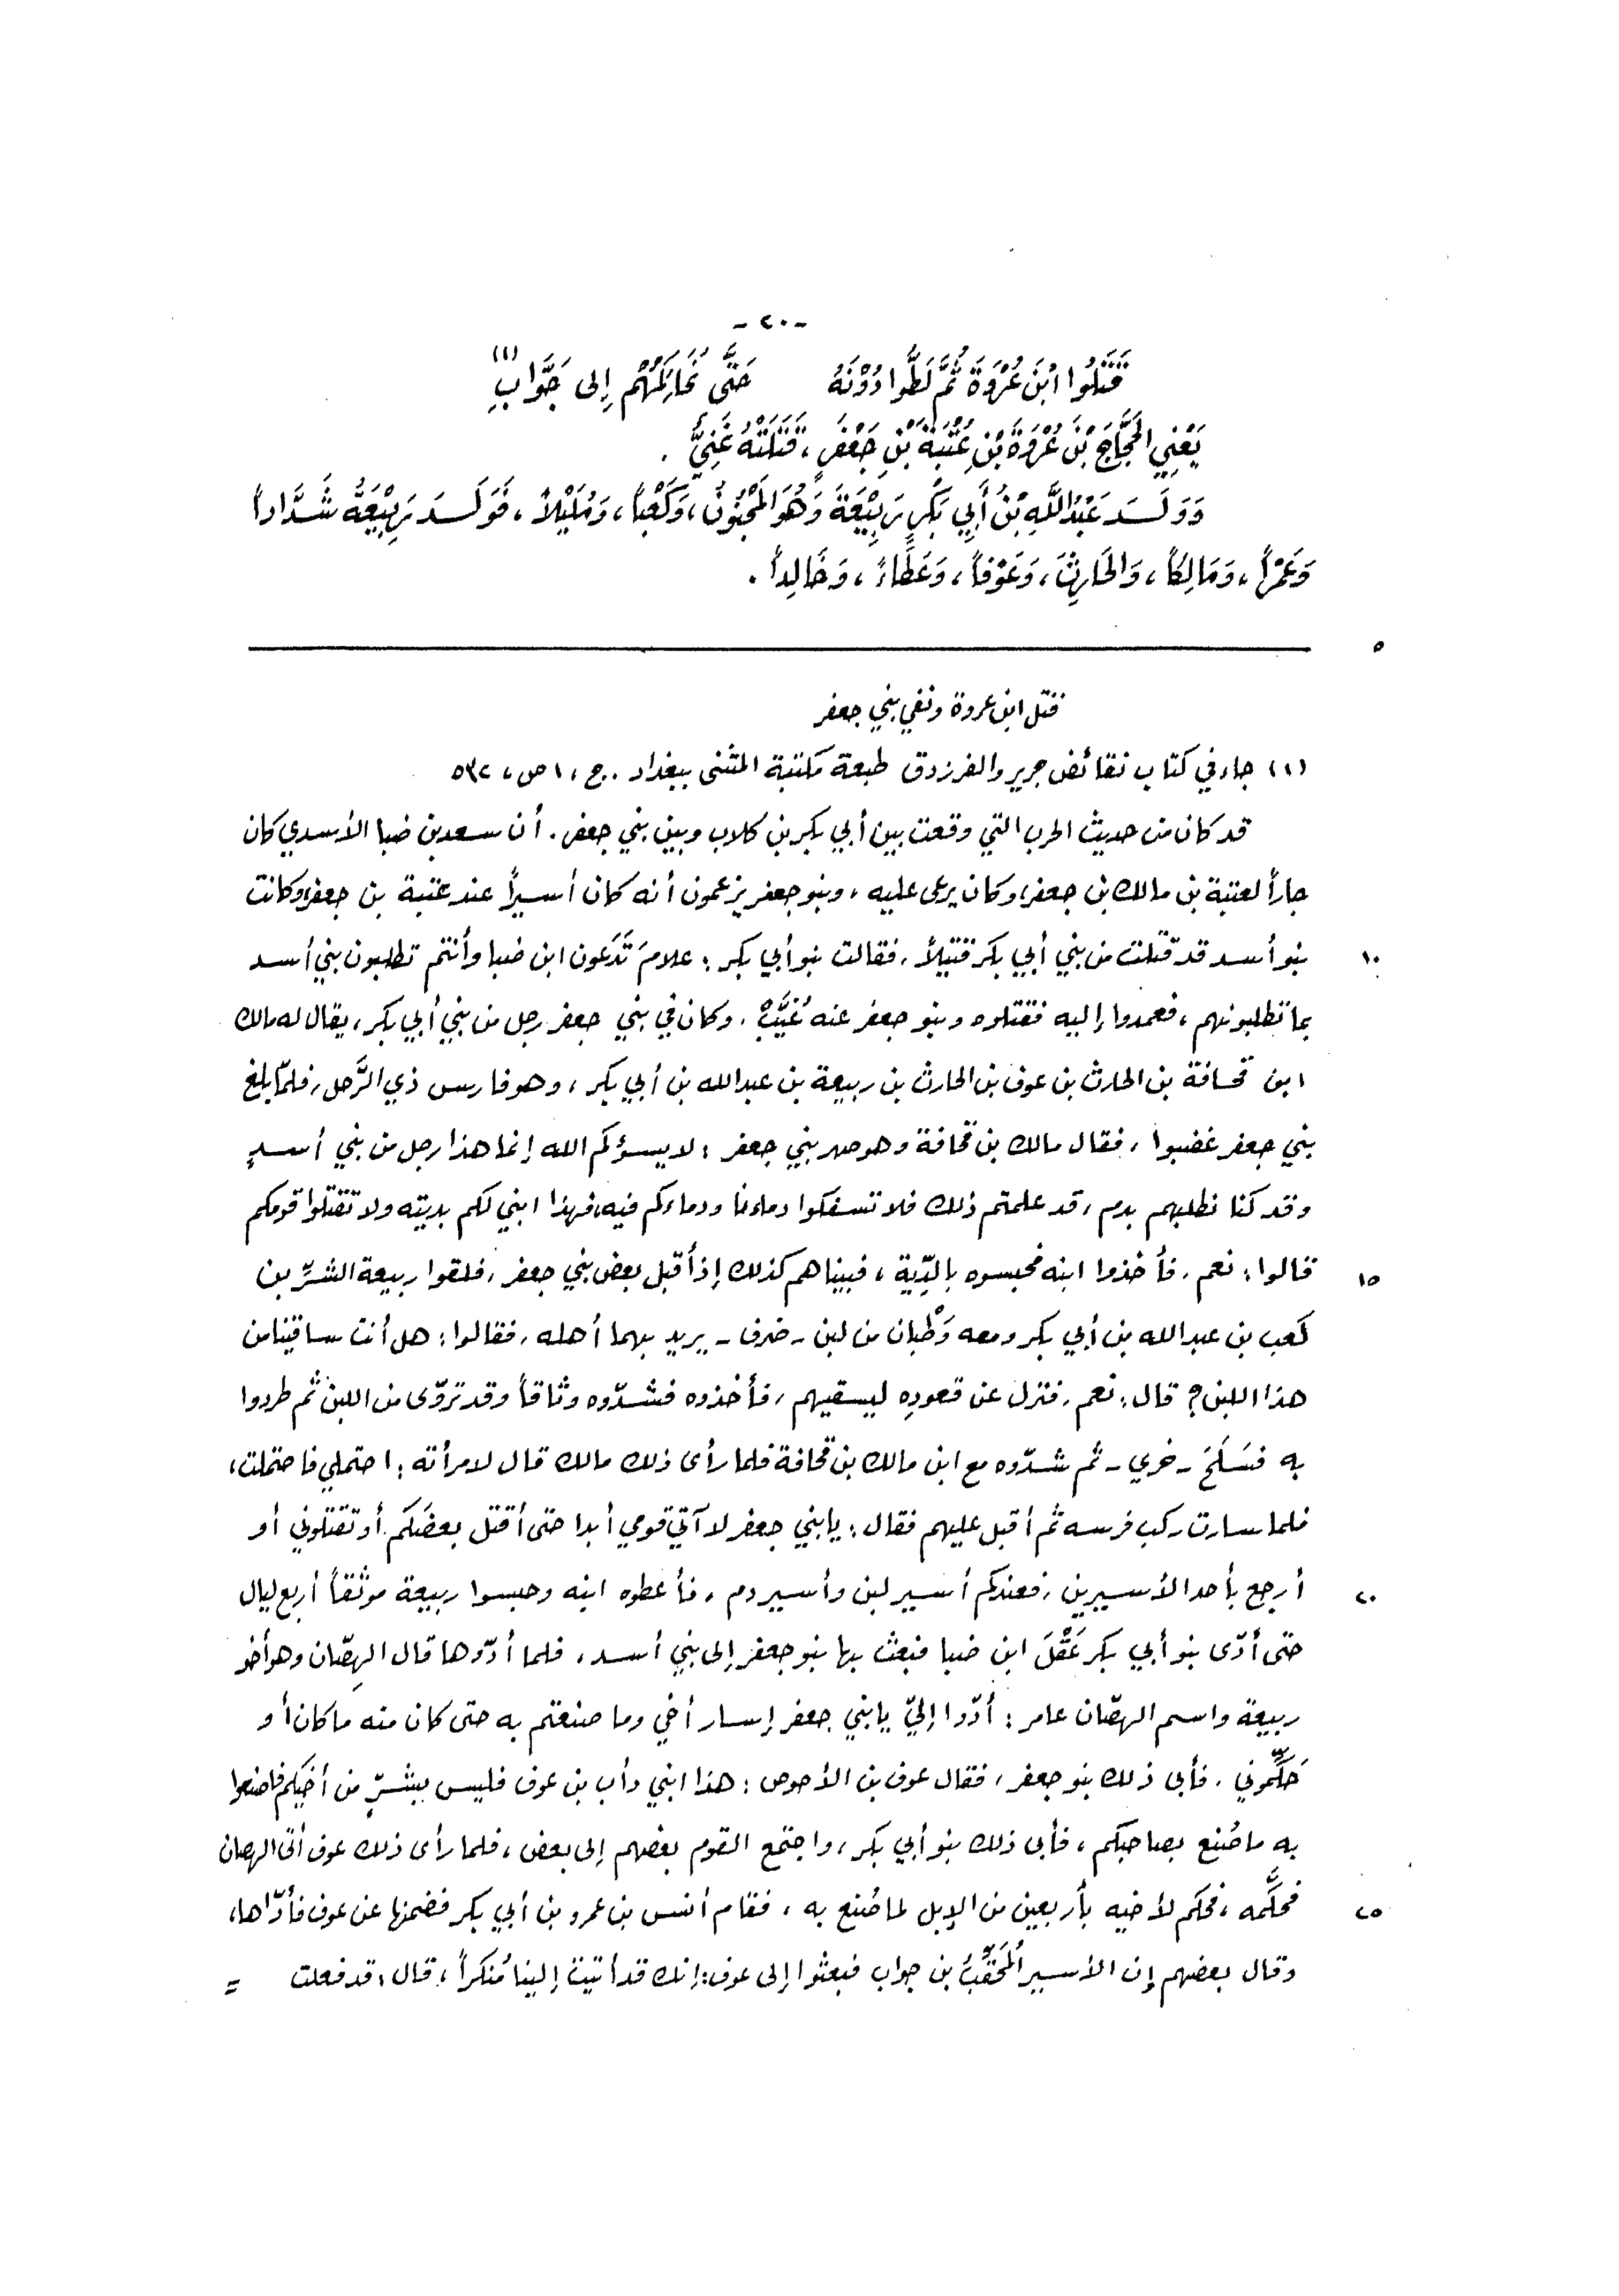 -٢٠-
قَتَلُوا ابْنَ عُرْوَةَ ثُمَّ لَطُّوا دُوْنَهُ حَتَّى نُحَاكِمَهُمْ إِلى جَوَّابِ (١)
يَعْنِي الحَجَّاجَ بْنَ عُرْوَةَ بْنِ عُتْبَةَ بْنِ جَعْفَرٍ، قَتَلَتْهُ غَنِيٌّ .
وَوَلَــدَ عَبْدُاللَّهِ بْنُ أَبِي بَكْرٍ رَبِيْعَةَ وَهُوَ المَجْنُونُ، وَكَعْباً، وَمُلَيْلاً، فَوَلَــدَ رَبِيْعَةُ شَدَّاداً
وَعَمْراً، وَمَالِكاً، وَالحَارِثَ، وَعَوْفاً، وَعَطَاءً، وَخَالِداً .
٥
قتل ابن عروة ونفي بني جعفر
(١) جاء في كتاب نقائض جرير والفرزدق طبعة مكتبة المثنى ببغداد . ج، ١ ص، ٥٣٢
قد كان من حديث الحرب التي وقعت بين أبي بكر بن كلاب وبين بني جعفر. أن سعد بن ضبا الأسدي كان
جاراً لعتبة بن مالك بن جعفر، وكان يرعى عليه، وبنو جعفر يزعمون أنه كان أسيراً عند عتبة بن جعفر، وكانت
١٠ بنو أسد قد قتلت من بني أبي بكر قتيلاً، فقالت بنو أبي بكر: علامَ تَدَعون ابن ضبا وأنتم تطلبون بني أسد
بما تطلبونهم، فعمدوا إليه فقتلوه وبنو جعفر عنه غُيَّبٌ، وكان في بني جعفر رجل من بني أبي بكر، يقال له مالك
ابن قحافة بن الحارث بن عوف بن الحارث بن ربيعة بن عبدالله بن أبي بكر، وهو فارس ذي الرَّحل، فلمّا بلغ
بني جعفر غضبوا، فقال مالك بن قحافة وهو صهر بني جعفر: لا يسؤكم الله إنما هذا رجل من بني أسدٍ
وقد كنا نطلبهم بدم، قد علمتم ذلك فلا تسفكوا دماءنا ودماءكم فيه، فهذا ابني لكم بديته ولا تقتلوا قومكم
١٥ قالوا: نعم، فأخذوا ابنه فحبسوه بالدِّية، فبينا هم كذلك إذ أقبل بعض بني جعفر، فلقوا ربيعة الشرِّ بن
كعب بن عبدالله بن أبي بكر ومعه وَطْبان من لبن - ضرف - يريد بهما أهله، فقالوا: هل أنت ساقينا من
هذا اللبن؟ قال: نعم، فنزل عن قعودِه ليسقيهم، فأخذوه فشدّوه وثاقاً وقد تروّى من اللبن ثم طردوا
به فسَلَحَ - خري - ثم شدّوه مع ابن مالك بن قحافة فلما رأى ذلك مالك قال لامرأته: احتملي فاحتملت،
فلما سارت ركب فرسه ثم أقبل عليهم فقال: يا بني جعفر لا آتي قومي أبدا حتى أقتل بعضَكم أو تقتلوني أو
٢٠ أرجع بأحد الأسيرين، فعندكم أسير لبن وأسير دم، فأعطوه ابنه وحبسوا ربيعة موثَقاً أربع ليال
حتى أدّى بنو أبي بكر عَقْلَ ابن ضبا فبعث بها بنو جعفر إلى بني أسد، فلما أدّوها قال الهِصّان وهو أخو
ربيعة واسم الهصّان عامر: أدّوا إليّ يا بني جعفر إسار أخي وما صنعتم به حتى كان منه ما كان أو
حَكِّموني، فأبى ذلك بنو جعفر، فقال عوف بن الأحوص: هذا ابني دأب بن عوف فليس بشرٍّ من أخيكم فاصنعوا
به ما صُنع بصاحبكم، فأبى ذلك بنو أبي بكر، واجتمع القوم بعضهم إلى بعض، فلما رأى ذلك عوف أتى الهصان
٢٥ فحكَّمه، فحكم لأخيه بأربعين من الإبل لما صُنع به، فقام أنس بن عمرو بن أبي بكر فضمنها عن عوف فأدّاها،
وقال بعضهم إن الأسير المُحَقَّبُ بن جواب فبعثوا إلى عوف: إنك قد أتيت إلينا مُنكراً، قال: قد فعلت =